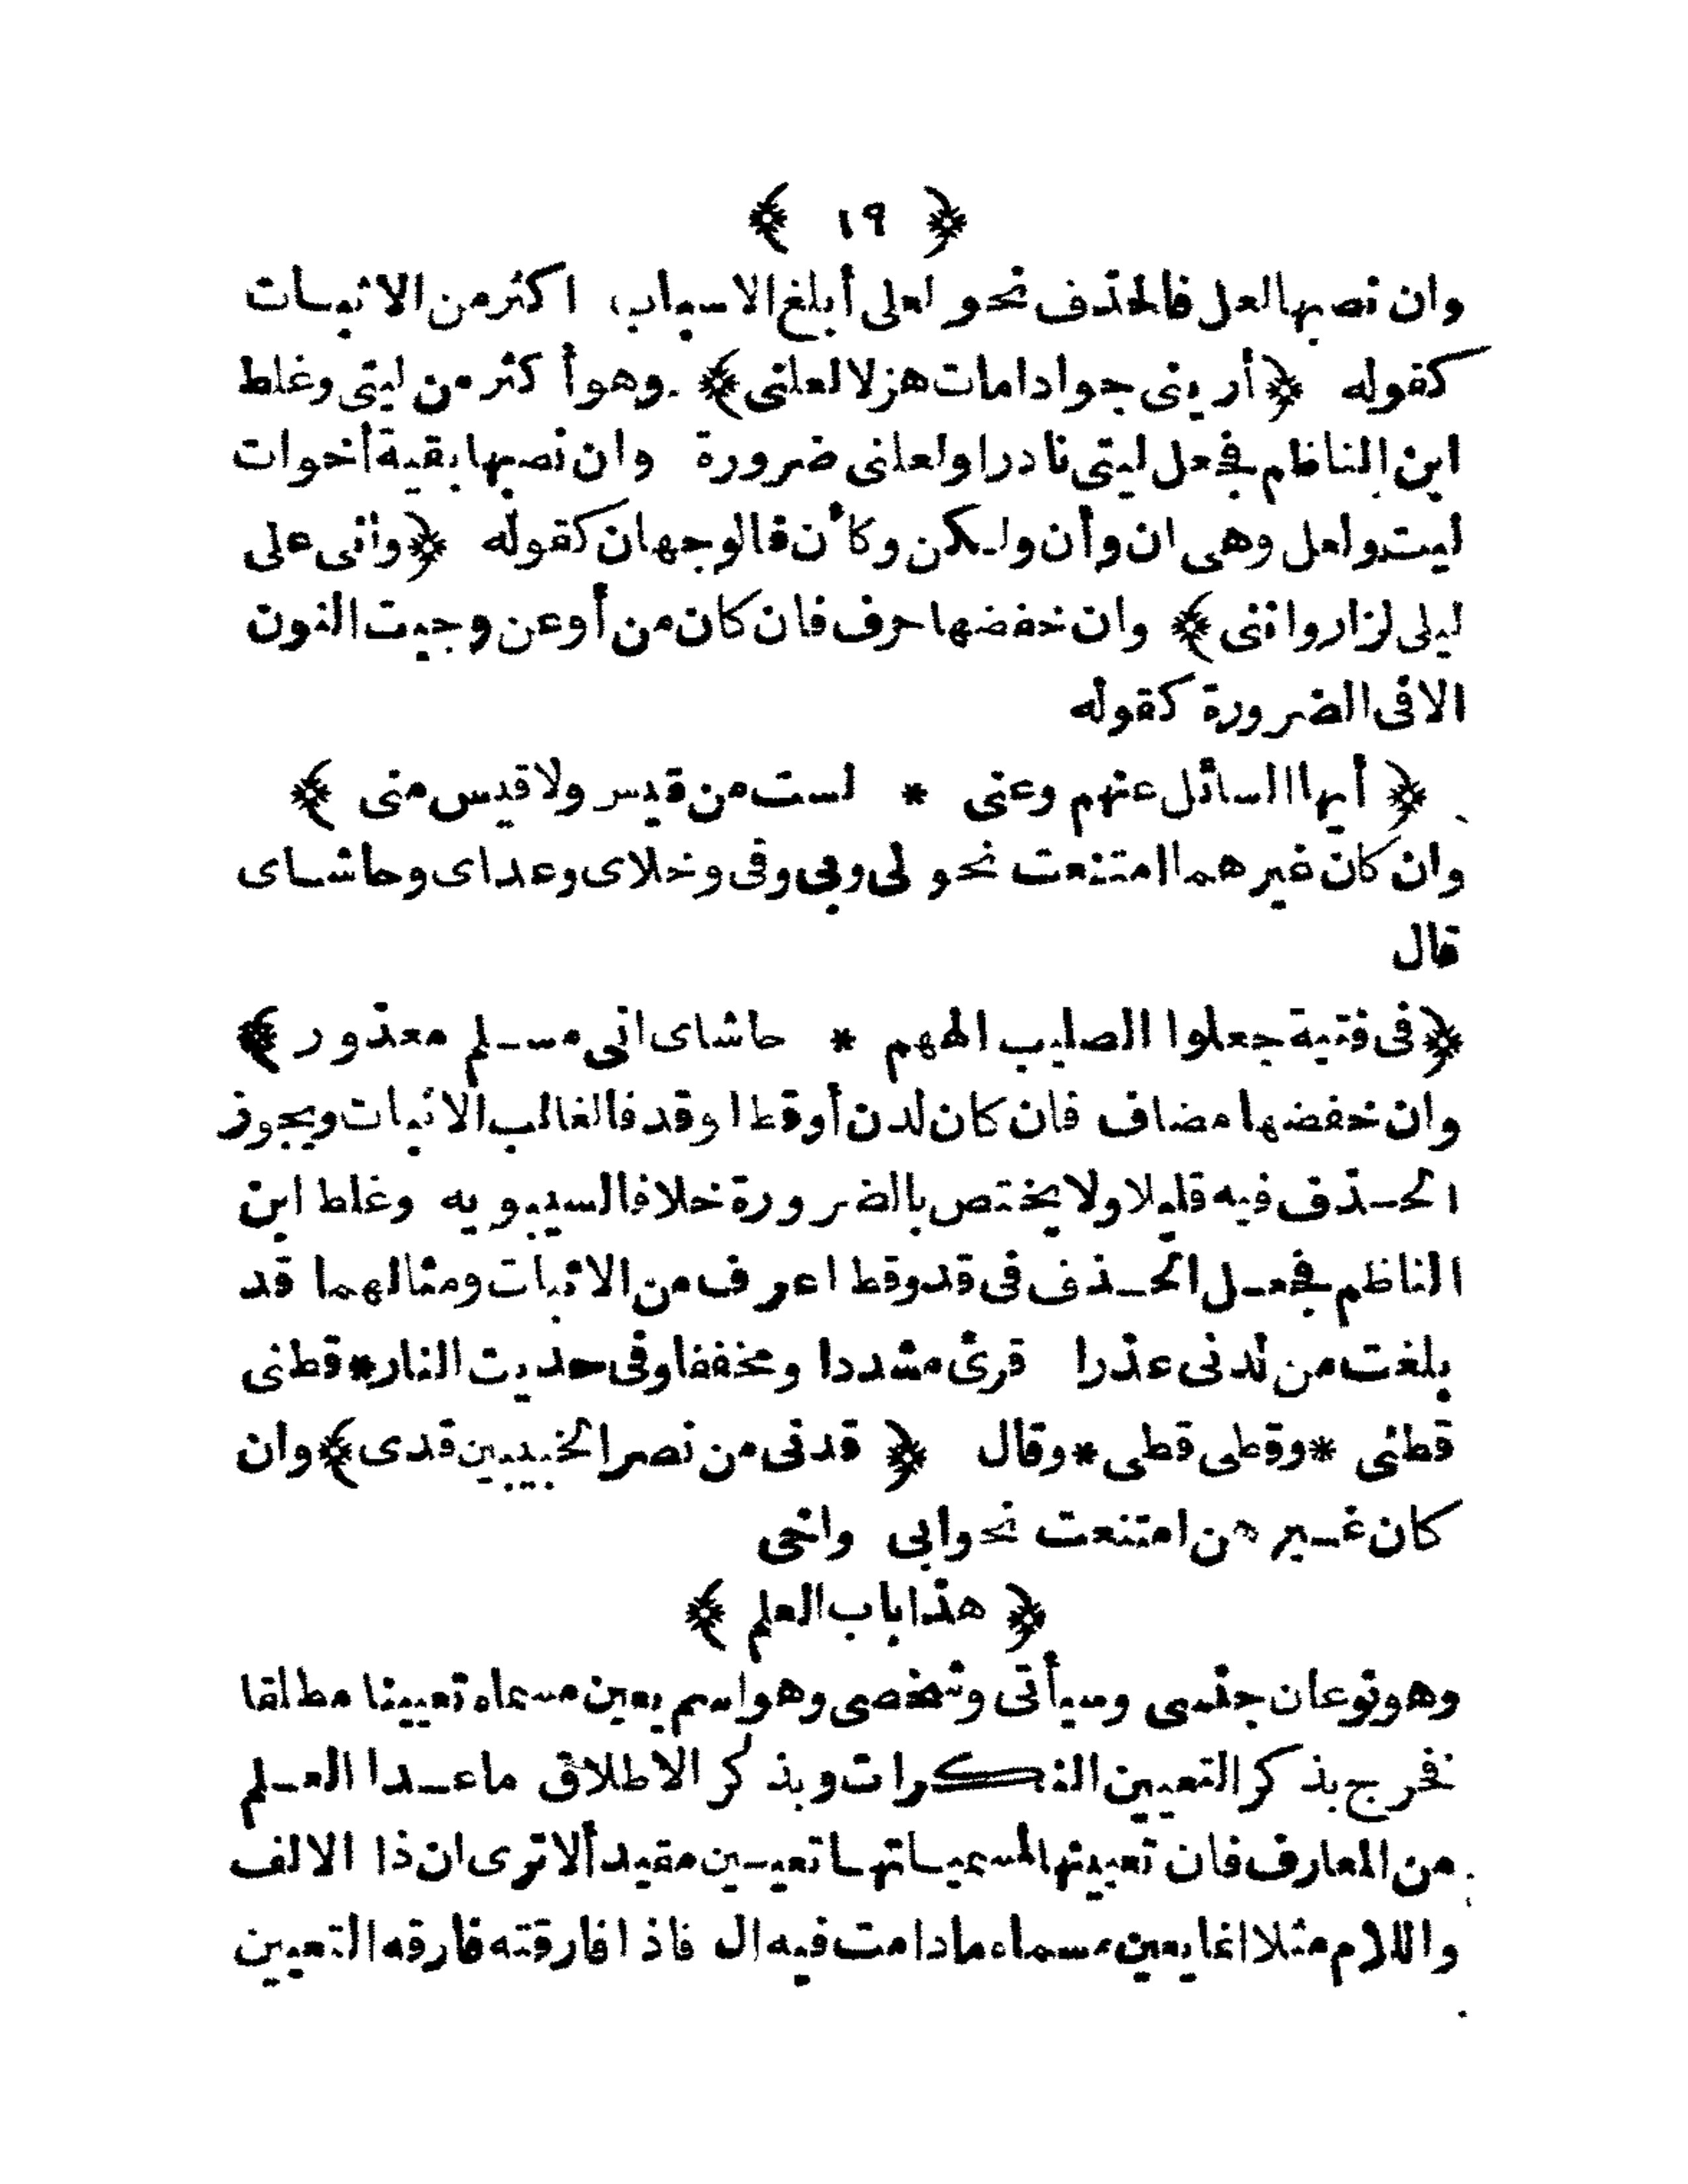 ﴿ ١٩ ﴾
وان نصبها لعل فالحذف نحو لعلى أبلغ الاسباب اكثر من الاثبات
كقوله ﴿ أرينى جوادا مات هزلا لعلنى ﴾ وهو أكثر من ليتى وغلط
ابن الناظم فجعل ليتى نادرا ولعلنى ضرورة وان نصبها بقية أخوات
ليت ولعل وهى ان وأن ولكن وكأن فالوجهان كقوله ﴿ وانى على
ليلى لزار واننى ﴾ وان خفضها حرف فان كان من أو عن وجبت النون
الا فى الضرورة كقوله
﴿ أيها السائل عنهم وعنى * لست من قيس ولا قيس منى ﴾
وان كان غيرهما امتنعت نحو لى وبى وفى وخلاى وعداى وحاشاى
قال
﴿ فى فتية جعلوا الصليب الههم * حاشاى انى مسلم معذور ﴾
وان خفضها مضاف فان كان لدن أو قط او قد فالغالب الاثبات ويجوز
الحذف فيه قليلا ولا يختص بالضرورة خلافا لسيبويه وغلط ابن
الناظم فجعل الحذف فى قد وقط اعرف من الاثبات ومثالهما قد
بلغت من لدنى عذرا قرئ مشددا ومخففا وفى حديث النار * قطنى
قطنى * وقطى قطى * وقال ﴿ قدنى من نصر الخبيبين قدى ﴾ وان
كان غيرهن امتنعت نحو ابى واخى
﴿ هذا باب العلم ﴾
وهو نوعان جنسى وسيأتى وشخصى وهو اسم يعين مسماه تعيينا مطلقا
فخرج بذكر التعيين النكرات وبذكر الاطلاق ماعدا العلم
من المعارف فان تعيينها لمسمياتها تعيين مقيد ألا ترى ان ذا الالف
واللام مثلا انما يعين مسماه مادامت فيه ال فاذا فارقته فارقه التعيين